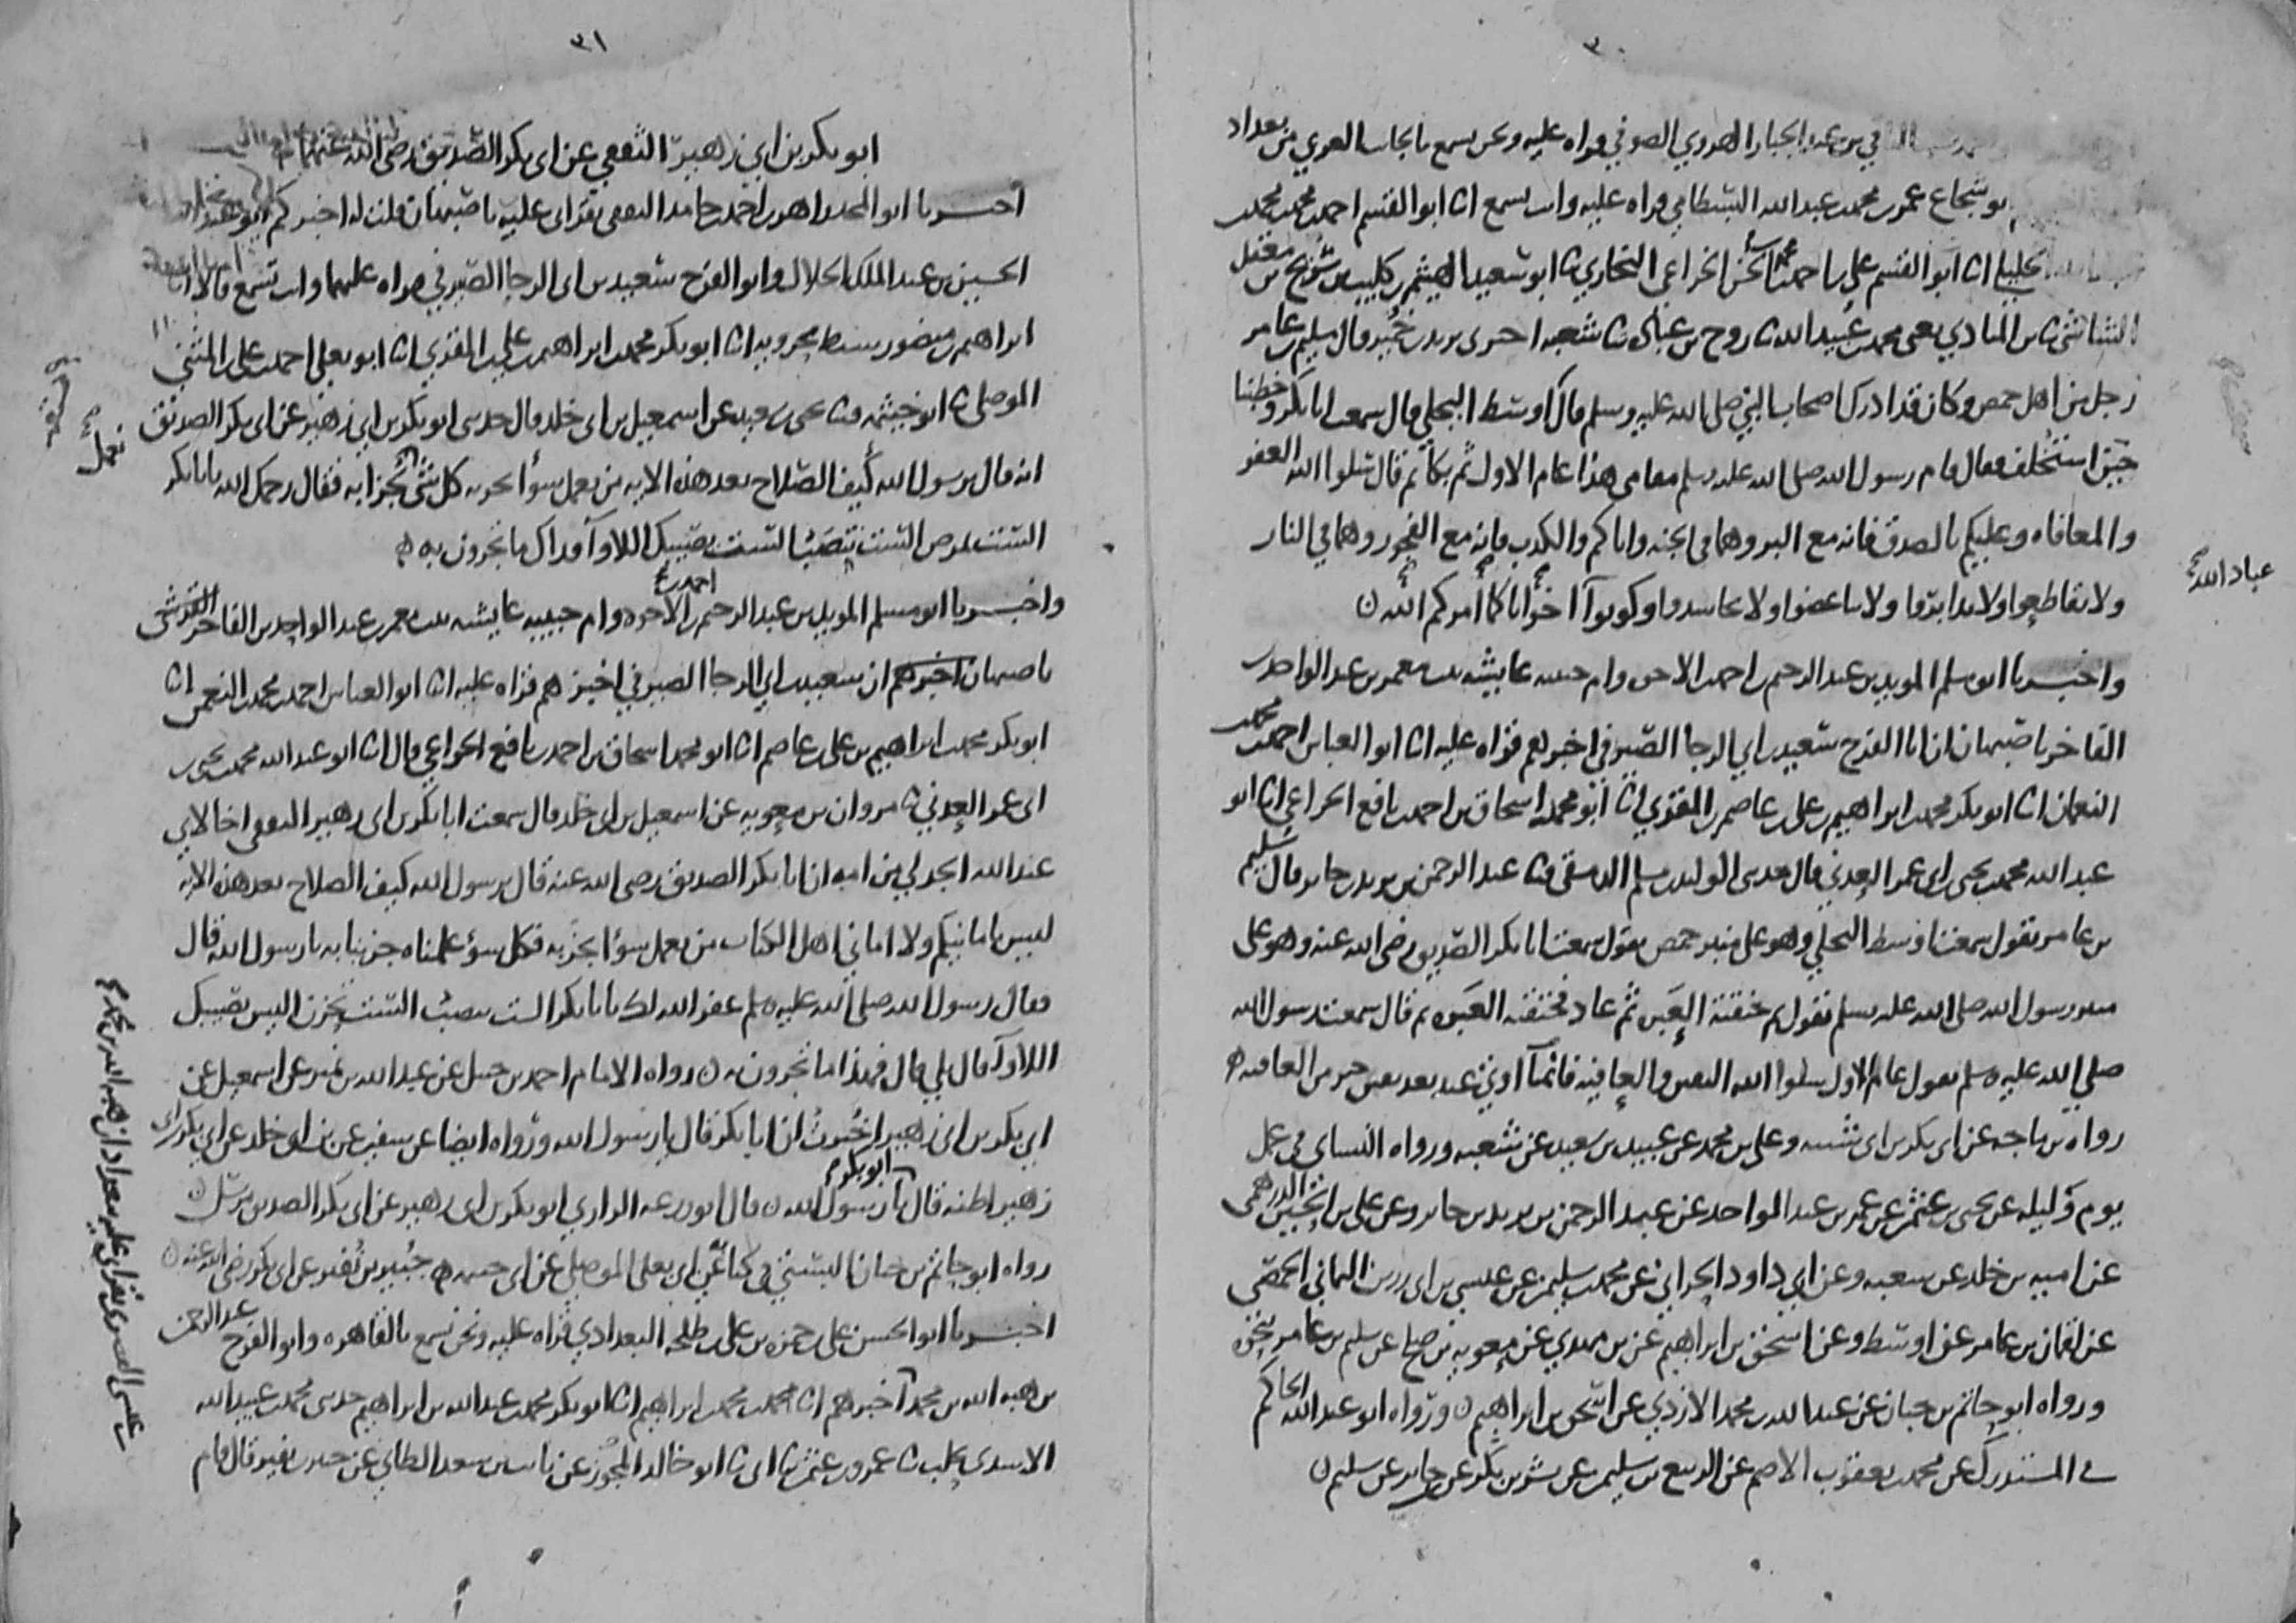 ٣٠
بن عبد الجبار الهروي الصوفي قراه عليه ونحن نسمع بالجانب الغربي من بغداد
ابو شجاع عمر بن محمد بن عبد الله البسطامي قراه عليه وانت تسمع انا ابو القسم احمد بن محمد بن محمد
الخليلي انا ابو القسم علي بن احمد بن محمد بن الحسن الخزاعي انا ابو سعيد الهيثم بن كليب بن شريح بن معقل
الشاشي ثنا بن المنادي يعني محمد بن عبيد الله ثنا روح بن عبادة ثنا شعبه اخبرني يزيد بن خمير قال سليم بن عامر
رجل من اهل حمص وكان قد ادرك اصحاب النبي صلى الله عليه وسلم قال اوسط البجلي قال سمعت ابا بكر وخطبنا
حين استخلف فقال قام رسول الله صلى الله عليه وسلم مقامي هذا عام الاول ثم بكا ثم قال سلوا الله العفو
والمعافاه وعليكم بالصدق فانه مع البر وهما في الجنه واياكم والكذب فانه مع الفجور وهما في النار
ولا تقاطعوا ولا تدابروا ولا تباغضوا ولا تحاسدوا وكونوا اخوانا كما امركم الله
عباد الله
واخبرنا ابو مسلم المويد بن عبد الرحيم بن احمد بن الاخوه وام حبيبه عايشه بنت معمر بن عبد الواحد بن
الفاخر باصبهان ان ابا الفرج سعيد بن ابي الرجا الصيرفي اخبرهم قراه عليه انا ابو العباس احمد بن محمد
النعمان انا ابو بكر محمد بن ابراهيم بن علي بن عاصم بن المقري انا ابو محمد اسحاق بن احمد بن نافع الخزاعي انا ابو
عبد الله محمد بن يحيى بن ابي عمر العدني قال حدثني الوليد بن مسلم الدمشقي ثنا عبد الرحمن بن يزيد بن جابر قال سليم
بن عامر يقول سمعت اوسط البجلي وهو على منبر حمص يقول سمعت ابا بكر الصديق رضي الله عنه وهو على
منبر رسول الله صلى الله عليه وسلم يقول ثم خنقته العبره ثم عاد فخنقته العبره ثم قال سمعت رسول الله
صلى الله عليه وسلم يقول عام الاول سلوا الله اليقين والعافيه فانما اوتي عبد بعد يقين خير من العافيه
رواه بن ماجه عن ابي بكر بن ابي شيبه وعلي بن محمد عن عبيد بن سعيد عن شعبه ورواه النساي في عمل
يوم وليله عن يحيى بن عثمن عن عمر بن عبد الواحد عن عبد الرحمن بن يزيد بن جابر وعن علي بن الحسين الدرهمي
عن اميه بن خالد عن شعبه وعن ابي داود الحراني عن محمد بن سليمن عن عيسى بن ابي رزين الثمالي الحمصي
عن لقمان بن عامر عن اوسط وعن اسحق بن ابراهيم عن بن مهدي عن معويه بن صالح عن سليم بن عامر بنحوه
ورواه ابو حاتم بن حبان عن عبد الله بن محمد الازدي عن اسحق بن ابراهيم ورواه ابو عبد الله الحاكم
في المستدرك عن محمد بن يعقوب الاصم عن الربيع بن سليمن عن بشر بن بكر عن جابر عن سليم
٣١
ابو بكر بن ابي زهير الثقفي عن ابي بكر الصديق رضي الله عنهما
اخبرنا ابو المجد زاهر بن احمد بن حامد الثقفي بقراتي عليه باصبهان قلت له اخبركم ابو عبد الله
الحسين بن عبد الملك الخلال وابو الفرج سعيد بن ابي الرجا الصيرفي قراه عليهما وانت تسمع قالا انا
ابراهيم بن منصور سبط بحرويه انا ابو بكر محمد بن ابراهيم بن علي بن المقري انا ابو يعلى احمد بن علي بن المثنى
الموصلي ثنا ابو خيثمه ثنا يحيى بن سعيد عن اسمعيل بن ابي خلد قال حدثني ابو بكر بن ابي زهير عن ابي بكر الصديق
انه قال يرسول الله كيف الصلاح بعد هذه الايه من يعمل سوا يجز به كل شي نجزا به فقال رحمك الله يابا بكر
نعمل
الست تمرض الست تنصب الست يصيبك اللاوا فذاك ما تجزون به
واخبرنا ابو مسلم المويد بن عبد الرحيم بن احمد بن الاخوه وام حبيبه عايشه بنت معمر بن عبد الواحد بن الفاخر القرشي
باصبهان اخبرهم ان سعيد بن ابي الرجا الصيرفي اخبرهم قراه عليه انا ابو العباس احمد بن محمد بن النعمن انا
ابو بكر محمد بن ابراهيم بن علي بن عاصم انا ابو محمد اسحاق بن احمد بن نافع الخزاعي قال انا ابو عبد الله محمد بن يحيى بن
ابي عمر العدني ثنا مروان بن معويه عن اسمعيل بن ابي خلد قال سمعت ابا بكر بن ابي زهير الثقفي اخا لابي
عبد الله الجدلي من امه ان ابا بكر الصديق رضي الله عنه قال يرسول الله كيف الصلاح بعد هذه الايه
ليس بامانيكم ولا اماني اهل الكتاب من يعمل سوا يجز به فكل سوء عملناه جزينا به يا رسول الله قال
فقال رسول الله صلى الله عليه وسلم غفر الله لك يابا بكر الست تنصب الست تحزن اليس يصيبك
اللاوا قال بلى قال فهذا ما تجزون به رواه الامام احمد بن حنبل عن عبد الله بن نمير عن اسمعيل عن
ابي بكر بن ابي زهير اخبرت ان ابا بكر قال يا رسول الله ورواه ايضا عن سفين عن بن ابي خلد عن ابي بكر بن ابي
زهير اظنه قال ابو بكر يا رسول الله قال ابو زرعه الرازي ابو بكر بن ابي زهير عن ابي بكر الصديق مرسل
رواه ابو حاتم بن حبان البستي في كتابه عن ابي يعلى الموصلي عن ابي خيثمه جبير بن نفير عن ابي بكر رضي الله عنه
اخبرنا ابو الحسن علي بن حمزه بن علي بن طلحه البغدادي قراه عليه ونحن نسمع بالقاهره وابو الفرج عبد الرحمن
بن هبه الله بن محمد اخبرهم انا محمد بن محمد بن ابراهيم انا ابو بكر محمد بن عبد الله بن ابراهيم حدثني محمد بن عبيد الله
الاسدي ثنا عمرو بن عثمن ثنا ابي ثنا ابو خالد عن ثابت بن سعد الطائي عن جبير بن نفير قال قام